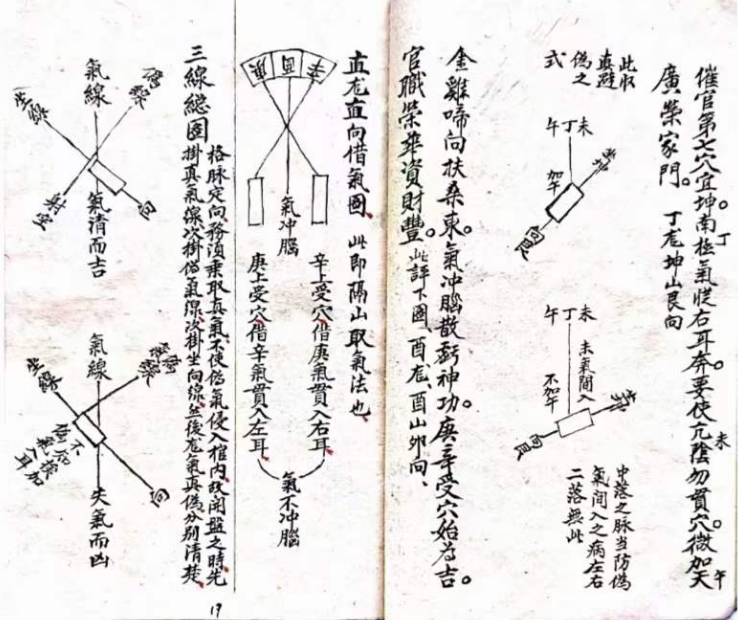 催官第七穴宜坤。南極氣從右耳奔。要使亢陰勿貫穴。微加天
丁
未
午
廣榮家門。丁龙坤山艮向
此收
真避
偽之
式
午丁未
加午
向艮
午丁未
未氣間入
不加午
向艮
中落之脉当防偽
氣間入之病左右
二落無此
金雞啼向扶桑東。氣冲腦散虧神功。庚辛受穴始為吉。
官職榮華資財豐。此評下圖、酉龙、酉山卯向、
直龙直向借氣圖、此即隔山取氣法也、
庚酉辛
氣冲腦
辛上受穴借庚氣貫入右耳、
庚上受穴借辛氣貫入左耳、
氣不冲腦
三線總图
格脉定向務須乘取真氣不使偽氣侵入棺內、故開盤之時先
掛真氣線次掛偽氣線次掛坐向線然後龙氣真偽分别清楚
氣線
偽線
坐線
向
氣清而吉
氣線
坐線
向
失氣而凶